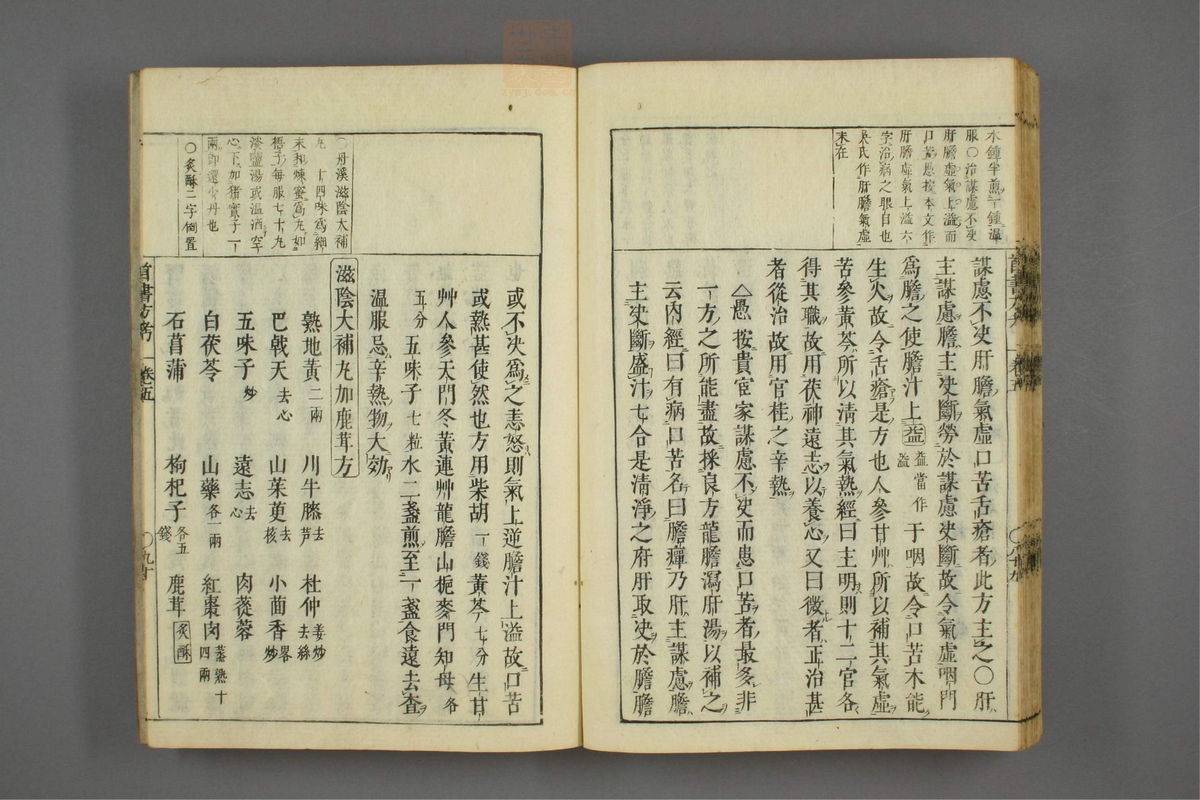 水鍾半煎一鍾溫
服○治謀慮不决
肝膽虛氣上溢而
口苦愚按本文作
肝膽虛氣上溢六
字治病之眼目也
吳氏作肝膽氣虛
未在
謀慮不决肝膽氣虛口苦舌瘡者此方主之○肝
主謀慮膽主决斷勞於謀慮决斷故令氣虛咽門
爲膽之使膽汁上益益當作溢于咽故令口苦木能
生火故令舌瘡是方也人參甘艸所以補其氣虛
苦參黃芩所以清其氣熱經曰主明則十二官各
得其職故用茯神遠志以養心又曰微者正治甚
者從治故用官桂之辛熱
△愚按貴宦家謀慮不决而患口苦者最多非
一方之所能盡故採良方龍膽瀉肝湯以補之
云內經曰有病口苦名曰膽癉乃肝主謀慮膽
主决斷盛汁七合是清淨之府肝取决於膽膽
或不决爲之恚怒則氣上逆膽汁上溢故口苦
或熱甚使然也方用柴胡一錢黃芩七分生甘
艸人參天門冬黃連艸龍膽山梔麥門知母各
五分五味子七粒水二盞煎至一盞食遠去查
溫服忌辛熱物大効
○丹溪滋陰大補
丸十四味爲細
末和煉蜜爲丸如
梧子每服七十丸
淡鹽湯或溫酒空
心下加猪實子一
兩即還少丹也
○炙酥二字倒置
滋陰大補丸加鹿茸方
熟地黃二兩 川牛膝去芦 杜仲姜炒去絲
巴戟天去心 山茱萸去核 小茴香畧炒
五味子炒 遠志去心 肉蓯蓉
白茯苓 山藥各一兩 紅棗肉蒸熟十四兩
石菖蒲 枸杞子各五錢 鹿茸炙酥